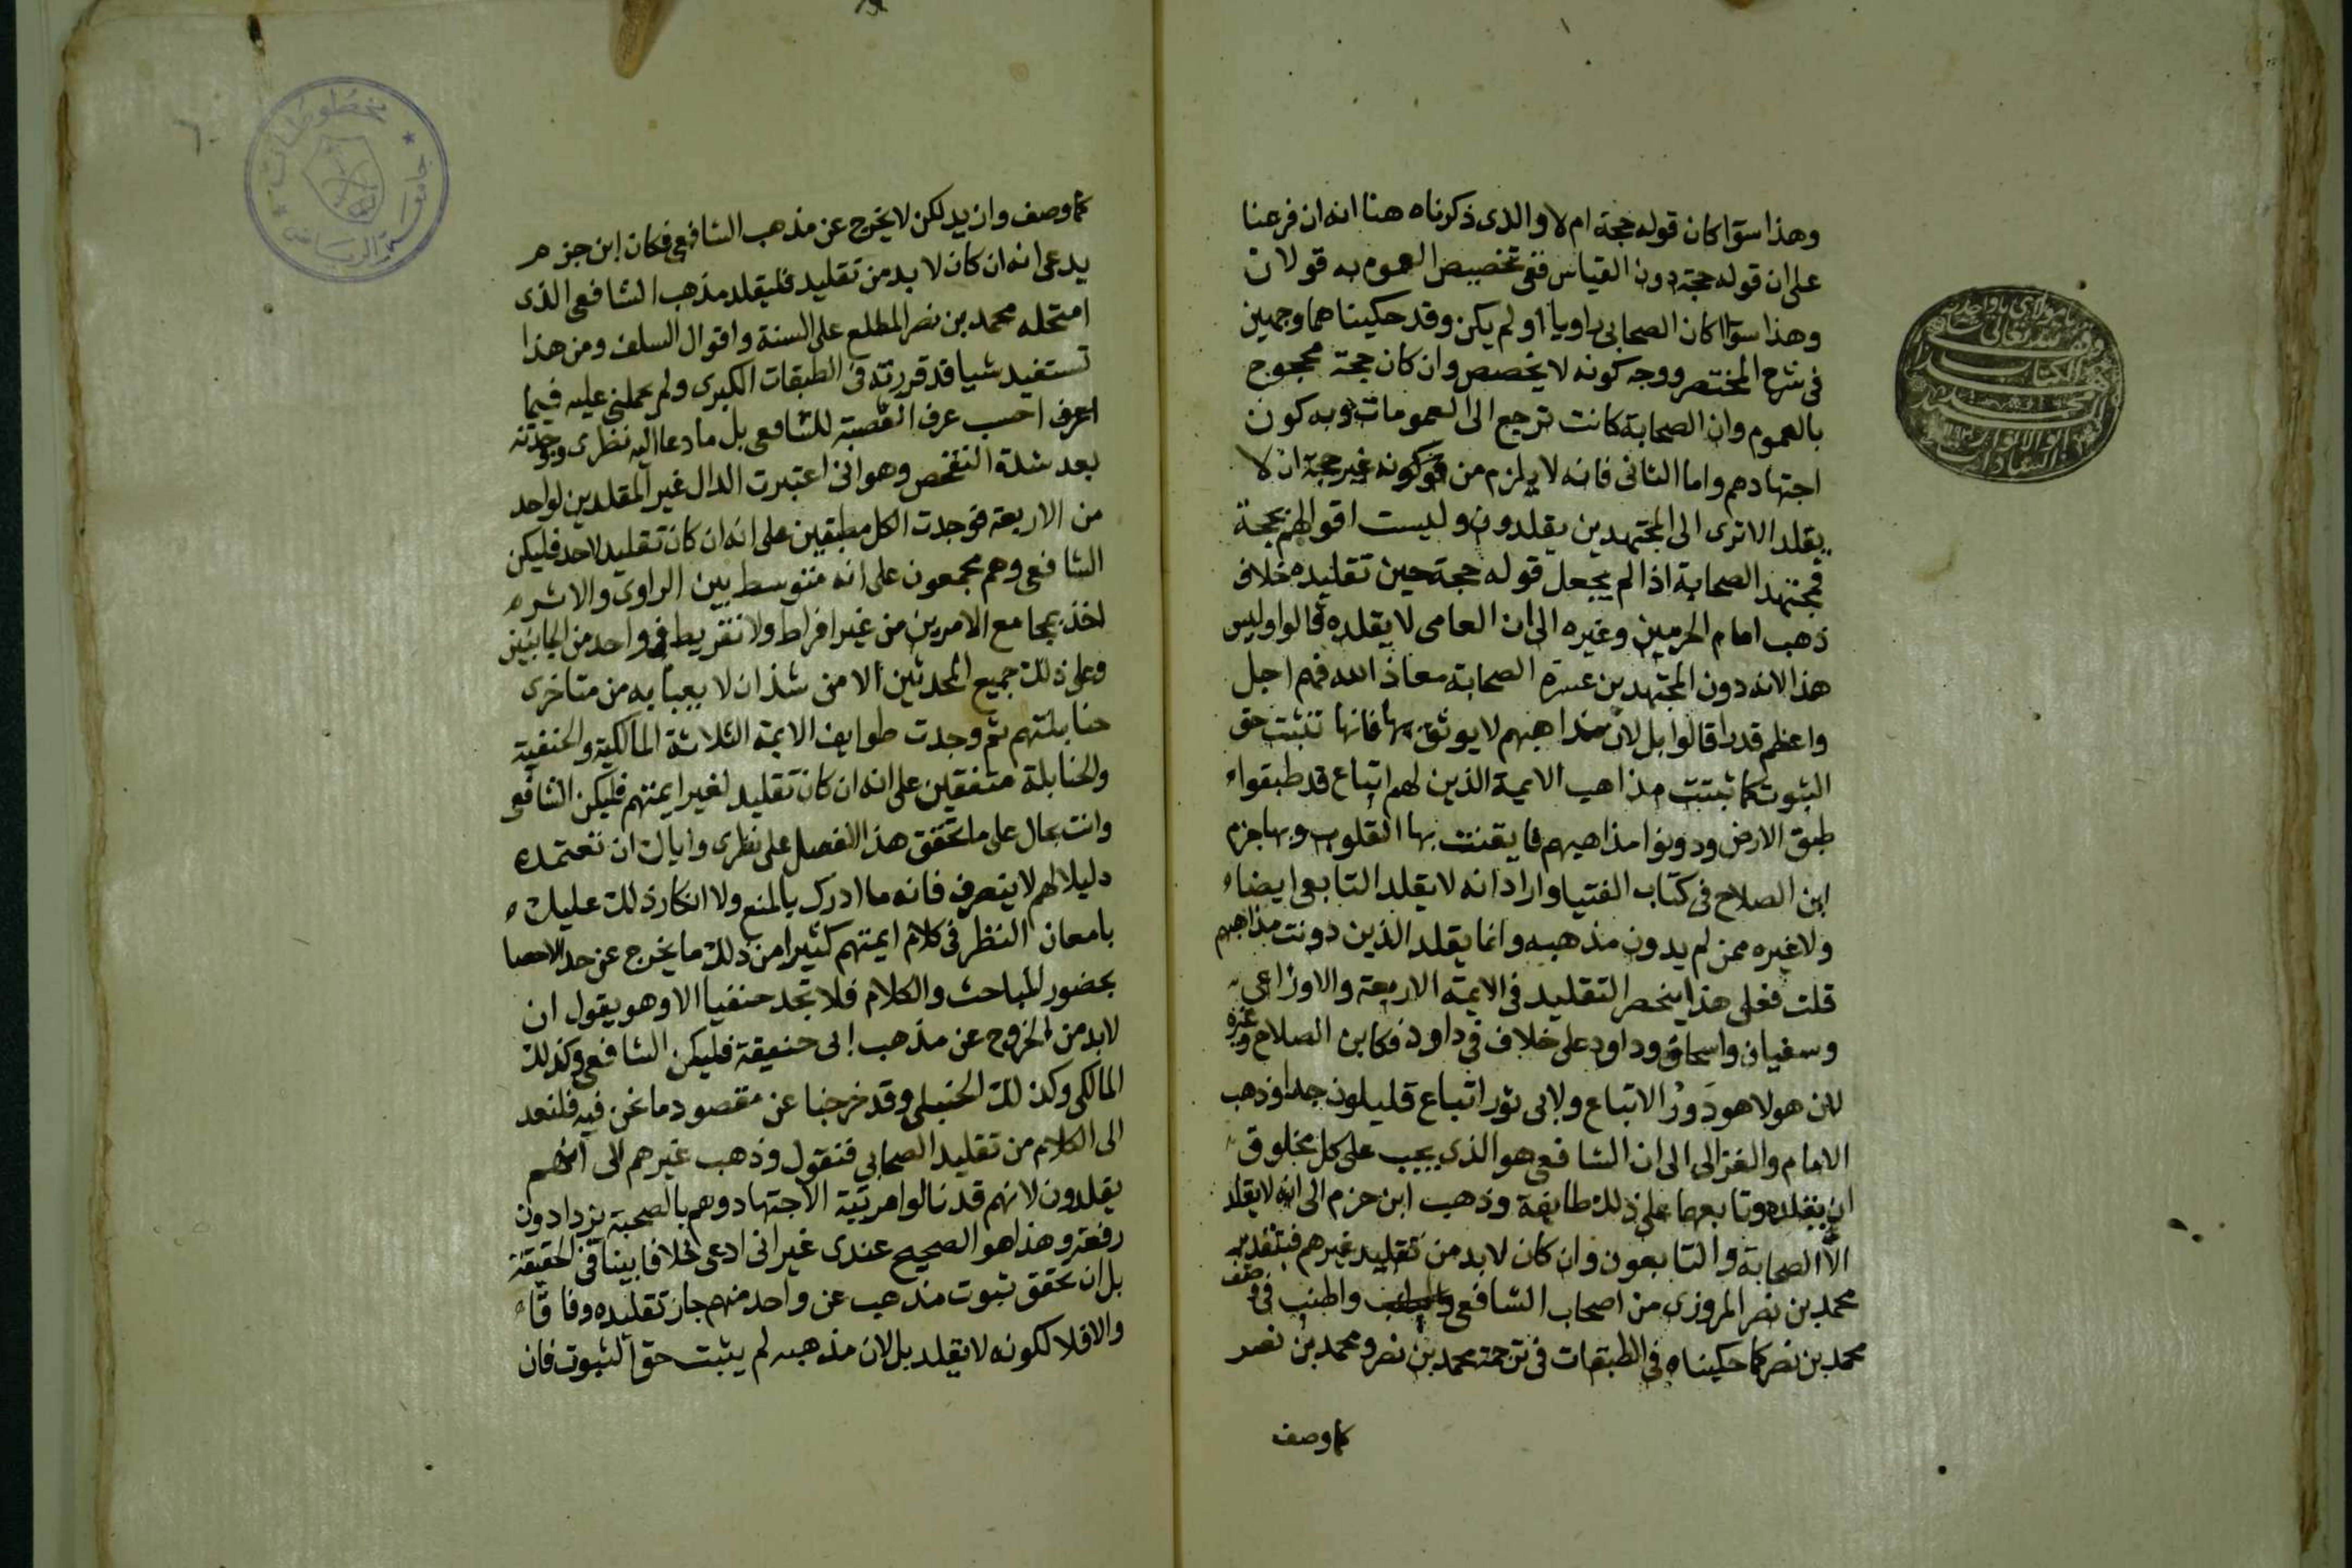 وهذا سوا كان قوله حجة ام لا والذى ذكرناه هنا انه ان فرعنا
على ان قوله حجة دون القياس ففى تخصيص العموم به قولان
وهذا سوا اكان الصحابى راويا او لم يكن وقد حكيناهما وجهين
فى شرح المختصر ووجه كونه لا يخصص وان كان حجة محجوج
بالعموم وان الصحابة كانت ترجع الى العمومات وبه كون
اجتهادهم واما الثانى فانه لا يلزم من كونه غير حجة ان لا
يقلد الا ترى الى المجتهدين يقلدون وليست اقوالهم بحجة
فمجتهد الصحابة اذا لم يجعل قوله حجة حين تقليده خلاف
ذهب امام الحرمين وغيره الى ان العامى لا يقلده قالوا وليس
هذا لانه دون المجتهدين غير الصحابة معاذ الله فهم اجل
واعظم قدرا قالوا بل لان مذاهبهم لا يوثق بها فانها تثبت حق
الثبوت كما ثبتت مذاهب الايمة الذين لهم اتباع قد طبقوا
طبق الارض ودونوا مذاهبهم فايقنت بها القلوب وبها جزم
ابن الصلاح فى كتاب الفتيا واراد انه لا يقلد التابعى ايضا
ولا غيره ممن لم يدون مذهبه وانما يقلد الذين دونت مذاهبهم
قلت فعلى هذا ينحصر التقليد فى الايمة الاربعة والاوزاعى
وسفيان واسحاق وداود على خلاف فى داود فكابن الصلاح وغيره
لان هولا هو ذوو الاتباع ولابى ثور اتباع قليلون جدا وذهب
الامام والغزالى الى ان الشافعى هو الذى يجب على كل مخلوق
ان يقلده وتابعهما على ذلك طايفة وذهب ابن حزم الى انه لا يقلد
الا الصحابة والتابعون وان كان لا بد من تقليد غيرهم
محمد بن نصر المروزى من اصحاب الشافعى واطنب فى وصف
محمد بن نصر كما حكيناه فى الطبقات فى ترجمة محمد بن نصر ومحمد بن نصر
كما وصف
كما وصف وازيد لكن لا يخرج عن مذهب الشافعى فكان ابن حزم
يدعى انه ان كان لا بد من تقليد فليقلد مذهب الشافعى الذى
امتحله محمد بن نصر المطلع على السنة واقوال السلف ومن هذا
تستفيد شيا قد قررته فى الطبقات الكبرى ولم يحملنى عليه فيما
اعرف احسب عرف العصبة للشافعى بل ما دعا اليه نظرى وجودته
بعد شدة التفحص وهو انى اعتبرت الدال غير المقلدين لواحد
من الاربعة فوجدت الكل مطبقين على انه ان كان تقليد لاحد فليكن
الشافعى وهم مجمعون على انه متوسط بين الراوى والاثر
اخذ بمجامع الامرين من غير افراط ولا تفريط فى واحد من الجانبين
وعلى ذلك جميع المحدثين الا من شذ ان لا يعبا به من متاخرى
حنابلتهم ثم وجدت طوايف الايمة الثلاثة المالكية والحنفية
والحنابلة متفقين على انه ان كان تقليد لغير ايمتهم فليكن الشافعى
وانت بحال على ما تحقق هذا الفصل على نظرى واياك ان تعتمده
دليلا لهم لا يتصرف فانه ما ادرك بالمنع ولا انكار ذلك عليك
بامعان النظر فى كلام ايمتهم كثيرا من ذلك ما يخرج عن حد الاحصا
بحضور المباحث والكلام فلا تجد حنفيا الا وهو يقول ان
لا بد من الخروج عن مذهب ابى حنيفة فليكن الشافعى وكذلك
المالكى وكذلك الحنبلى وقد خرجنا عن مقصود ما نحن فيه فلنعد
الى الكلام من تقليد الصحابى فنقول وذهب غيرهم الى انهم
يقلدون لانهم قد نالوا مرتبة الاجتهاد وهم بالصحبة يزدادون
رفعة وهذا هو الصحيح عندى غير انى ادعى لا خلافا بيننا فى الحقيقة
بل ان تحقق ثبوت مذهب عن واحد منهم جاز تقليده وفاقا
والا فلا لكونه لا يقلد بل لان مذهبه لم يثبت حق الثبوت فان
مخطوطات
جامعة الرياض